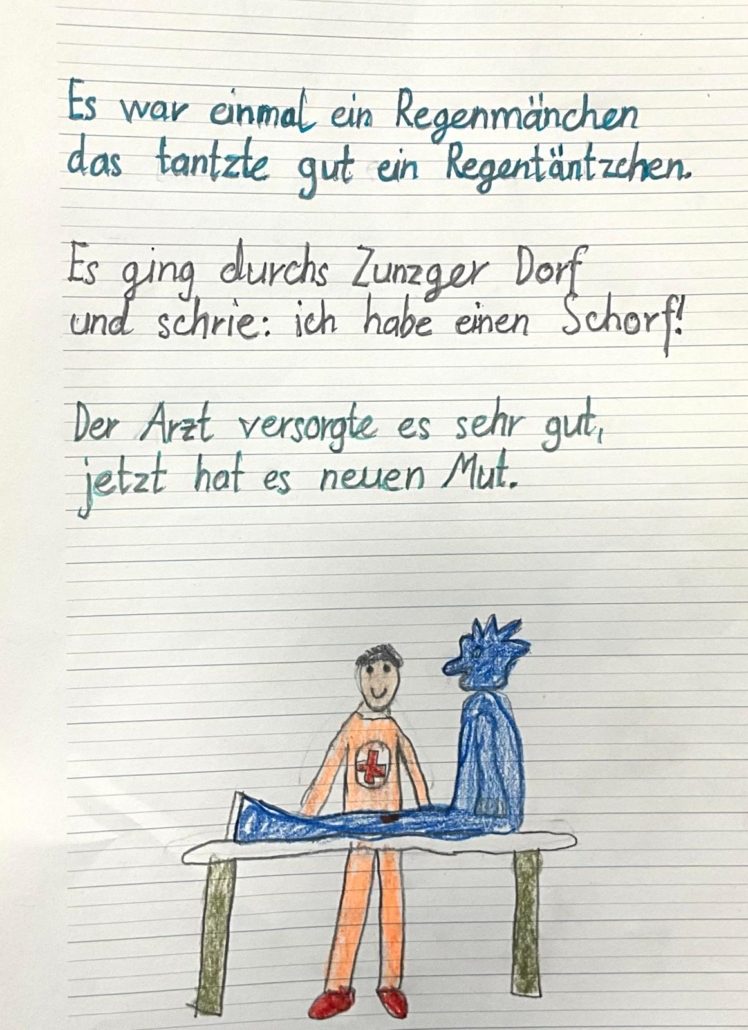 Es war einmal ein Regenmänchen
das tantzte gut ein Regentäntzchen.
Es ging durchs Zunzger Dorf
und schrie: ich habe einen Schorf!
Der Arzt versorgte es sehr gut,
jetzt hat es neuen Mut.